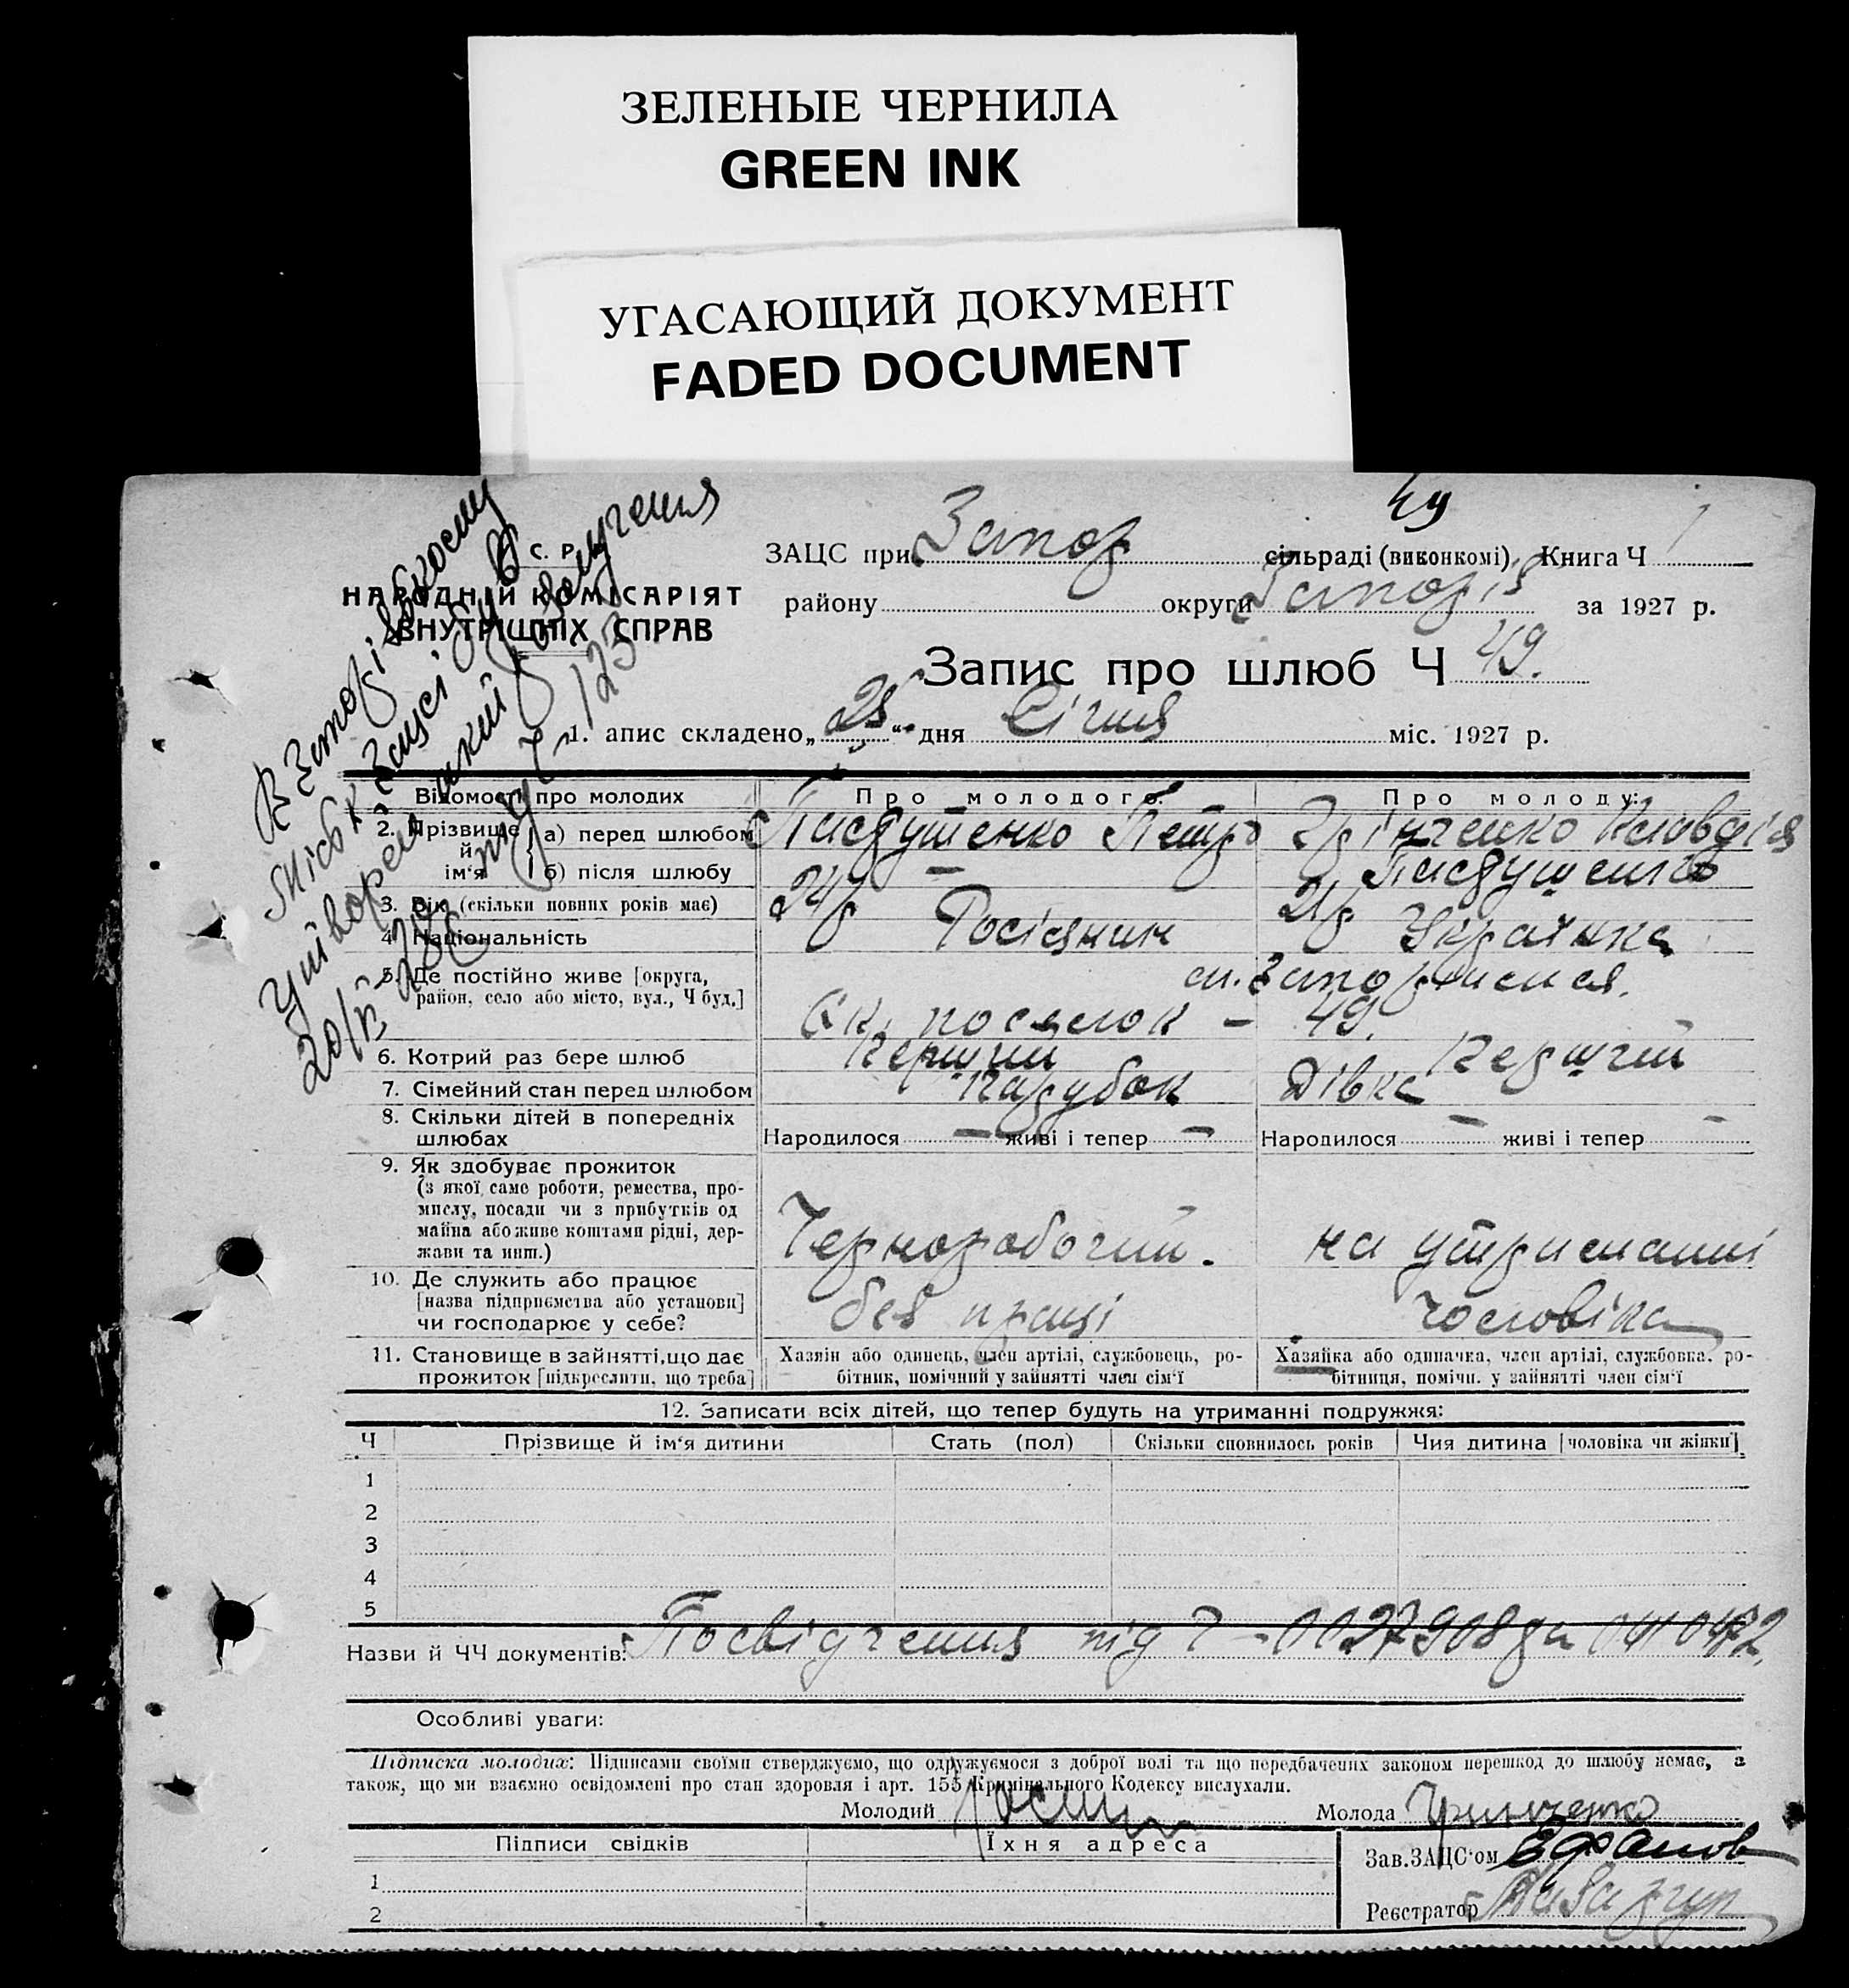 ЗЕЛЕНЫЕ ЧЕРНИЛА
GREEN INK
УГАСАЮЩИЙ ДОКУМЕНТ
FADED DOCUMENT
49
С. Р.
НАРОДНІЙ КОМІСАРІЯТ
ВНУТРІШНІХ СПРАВ
ЗАЦС при Запор сільраді (виконкомі) Книга Ч
району округи Запоріз за 1927 р.
Запис про шлюб Ч 49.
1. апис складено „ 25 “ дня Січня міс. 1927 р.
В Запорізькому
Відомості про молодих Про молодого: Про молоду:
2. Прізвище й ім'я а) перед шлюбом Пастушенко Петро Грінченко Клавдія
б) після шлюбу — Пастушенко
3. Вік (скільки повних років має) 24р 21р
4. Національність Росіянин Українка
5. Де постійно живе [округа, район, село або місто, вул., Ч буд.] м. Запоріжжя.
поселок – 49.
6. Котрий раз бере шлюб Перший Перший
7. Сімейний стан перед шлюбом Парубок Дівка
8. Скільки дітей в попередніх шлюбах Народилося — живі і тепер — Народилося — живі і тепер —
9. Як здобуває прожиток
(з якої саме роботи, ремества, про-
мислу, посади чи з прибутків од
майна або живе коштами рідні, дер-
жави та инш.) Чернорабочий. на утриманні
10. Де служить або працює
[назва підприємства або установи]
чи господарює у себе? без праці чоловіка
11. Становище в зайнятті, що дає
прожиток [підкреслити, що треба]
Хазяїн або одинець, член артілі, службовець, ро-
бітник, помічний у зайнятті член сім'ї
Хазяйка або одиначка, член артілі, службовка, ро-
бітниця, помічн. у зайнятті член сім'ї
12. Записати всіх дітей, що тепер будуть на утриманні подружжя:
Ч Прізвище й ім'я дитини Стать (пол) Скільки сповнилось років Чия дитина [чоловіка чи жінки]
1
2
3
4
5
Назви й ЧЧ документів: Посвідчення під Ч – 0027908 да
Особливі уваги:
Підписка молодих: Підписами своїми стверджуємо, що одружуємося з доброї волі та що передбачених законом перешкод до шлюбу немає, а
також, що ми взаємно освідомлені про стан здоровля і арт. 155 Кримінального Кодексу вислухали.
Молодий Молода Гринченко
Підписи свідків Їхня адреса
Зав. ЗАЦС'ом
1
Реєстратор
2